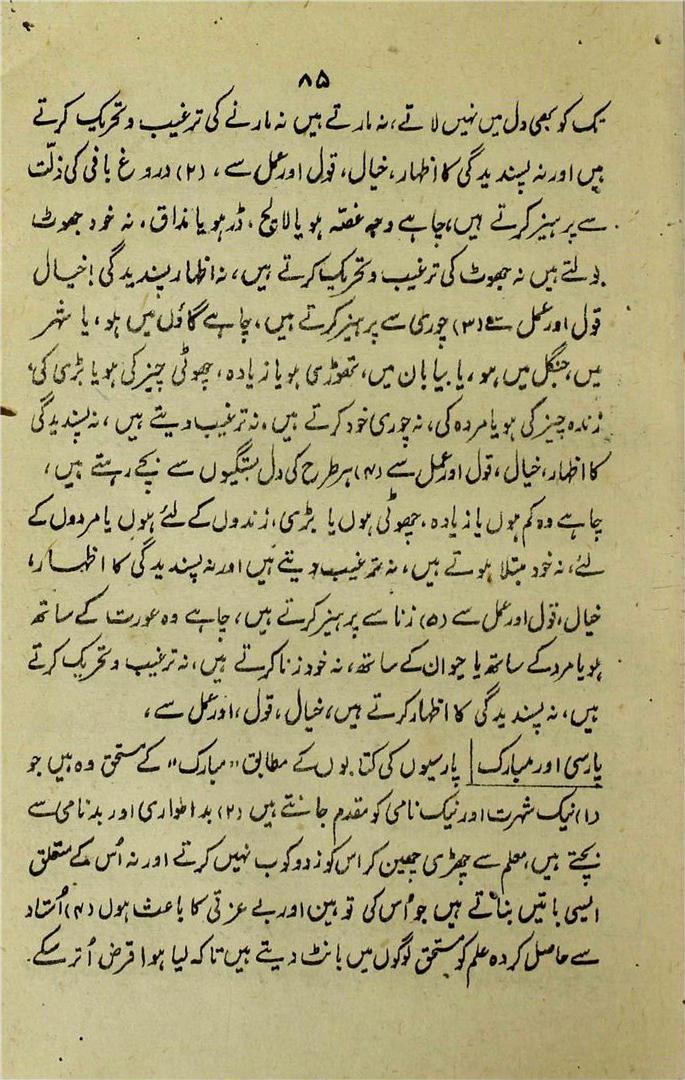 ۸۵
تک کو بھی دل میں نہیں لاتے، نہ مارتے ہیں نہ مارنے کی ترغیب و تحریک کرتے
ہیں اور نہ پسندیدگی کا اظہار، خیال، قول اور عمل سے، (۲) دروغ بافی کی ذلّت
سے پرہیز کرتے ہیں، چاہے وجہ غصّہ ہو یا لالچ، ڈر ہو یا مذاق، نہ خود جھوٹ
بولتے ہیں نہ جھوٹ کی ترغیب و تحریک کرتے ہیں، نہ اظہار پسندیدگی! خیال
قول اور عمل سے (۳) چوری سے پرہیز کرتے ہیں، چاہے گاؤں میں ہو، یا شہر
میں، جنگل میں ہو، یا بیابان میں، تھوڑی ہو یا زیادہ، چھوٹی چیز کی ہو یا بڑی کی،
زندہ چیز کی ہو یا مردہ کی، نہ چوری خود کرتے ہیں، نہ ترغیب دیتے ہیں، نہ پسندیدگی
کا اظہار، خیال، قول اور عمل سے (۴) ہر طرح کی دل بستگیوں سے بچے رہتے ہیں،
چاہے وہ کم ہوں یا زیادہ، چھوٹی ہوں یا بڑی، زندوں کے لئے ہوں یا مردوں کے
لئے، نہ خود مبتلا ہوتے ہیں، نہ ترغیب دیتے ہیں اور نہ پسندیدگی کا اظہار،
خیال، قول اور عمل سے (۵) زنا سے پرہیز کرتے ہیں، چاہے وہ عورت کے ساتھ
ہو یا مرد کے ساتھ یا حیوان کے ساتھ، نہ خود زنا کرتے ہیں، نہ ترغیب و تحریک کرتے
ہیں، نہ پسندیدگی کا اظہار کرتے ہیں، خیال، قول، اور عمل سے،
پارسی اور مبارک | پارسیوں کی کتابوں کے مطابق "مبارک" کے مستحق وہ ہیں جو
(۱) نیک شہرت اور نیک نامی کو مقدم جانتے ہیں (۲) بداطواری اور بدنامی سے
بچتے ہیں، معلم سے چھڑی چھین کر اس کو زدوکوب نہیں کرتے اور نہ اُس کے متعلق
ایسی باتیں بناتے ہیں جو اُس کی توہین اور بے عزتی کا باعث ہوں (۴) اُستاد
سے حاصل کردہ علم کو مستحق لوگوں میں بانٹ دیتے ہیں تاکہ لیا ہوا قرض اُتر سکے۔